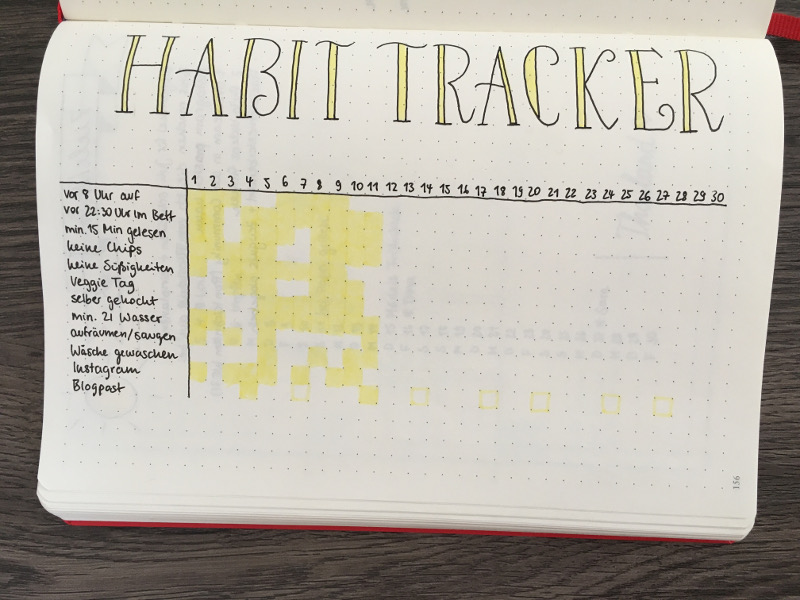 HABIT TRACKER
1 2 3 4 5 6 7 8 9 10 11 12 13 14 15 16 17 18 19 20 21 22 23 24 25 26 27 28 29 30
vor 8 Uhr auf
vor 22:30 Uhr im Bett
min. 15 Min gelesen
keine Chips
keine Süßigkeiten
Veggie Tag
selber gekocht
min. 2l Wasser
aufräumen/saugen
Wäsche gewaschen
Instagram
Blogpost
156